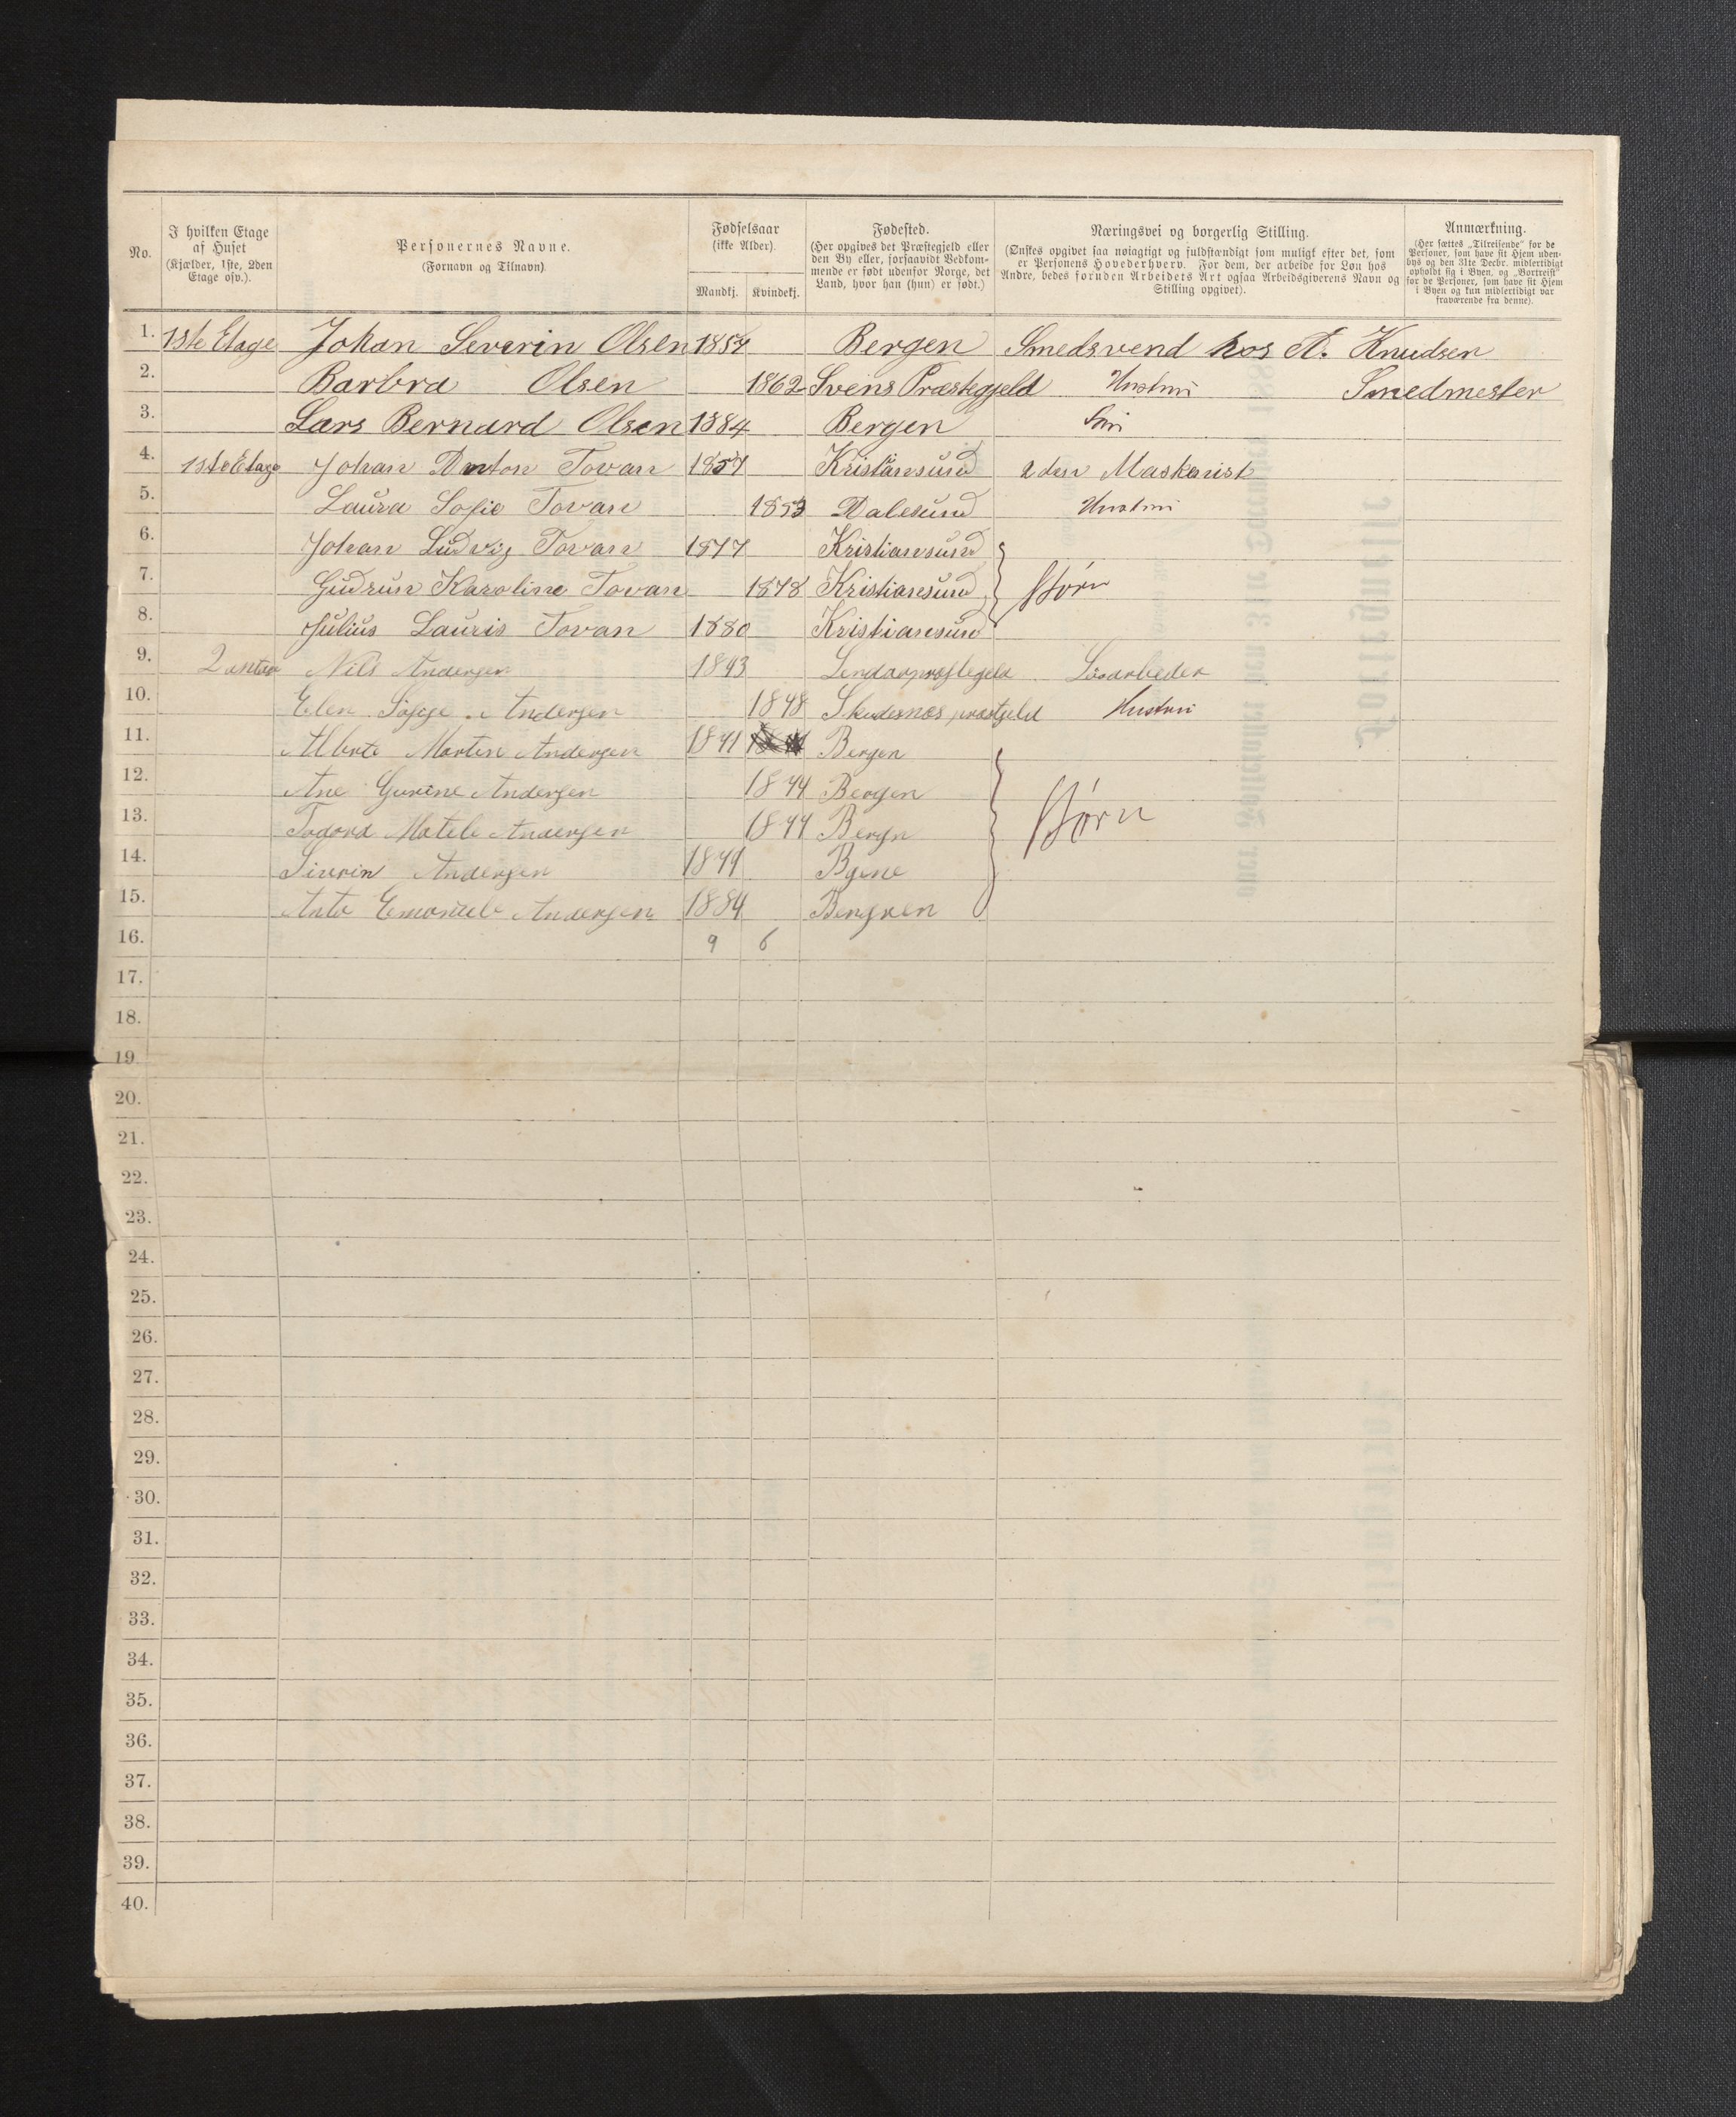 No.
I hvilken Etage af Huset (Kjælder, 1ste, 2den Etage osv.).
Personernes Navne. (Fornavn og Tilnavn)
Fødselsaar (ikke Alder).
Mandkj. Kvindekj.
Fødested. (Her opgives det Præstegjeld eller den By eller, forsaavidt Vedkommende er født udenfor Norge, det Land, hvor han (hun) er født.)
Næringsvei og borgerlig Stilling. (Ønskes opgivet saa nøiagtigt og fuldstændigt som muligt efter det, som er Personens Hovederhverv. For dem, der arbeide for Løn hos Andre, bedes foruden Arbeidets Art ogsaa Arbeidsgiverens Navn og Stilling opgivet).
Anmærkning. (Her sættes „Tilreisende“ for de Personer, som have sit Hjem udenbys og den 31te Decbr. midlertidigt opholdt sig i Byen, og „Bortreist“ for de Personer, som have sit Hjem i Byen og kun midlertidigt var fraværende fra denne).
1. 1ste Etage Johan Severin Olsen 1854 Bergen Smedsvend hos A. Knudsen
2. Barbra Olsen 1862 Svens Præstegjeld Hustru Smedmester
3. Lars Bernard Olsen 1884 Bergen Søn
4. 1ste Etage Johan Anton Tovan 1857 Kristiansund 2den Maskenist
5. Laura Sofie Tovan 1853 Dalesund Hustru
6. Johan Ludvig Tovan 1877 Kristiansund
7. Gudrun Karoline Tovan 1878 Kristiansund Børn
8. Julius Lauris Tovan 1880 Kristiansund
9. Nils Andersen 1843 Løsarbeder
10. Elen Andersen 1848 Skudesnes præstjeld Hustru
11. Alberte Marten Andersen 1871 Bergen
12. Ane Gurine Andersen 1874 Bergen
13. Andersen 1877 Bergn Børn
14. Siverin Andersen 1879
15. Anto Emanuel Andersen 1884
16. 9 6
17.
18.
19.
20.
21.
22.
23.
24.
25.
26.
27.
28.
29.
30.
31.
32.
33.
34.
35.
36.
37.
38.
39.
40.